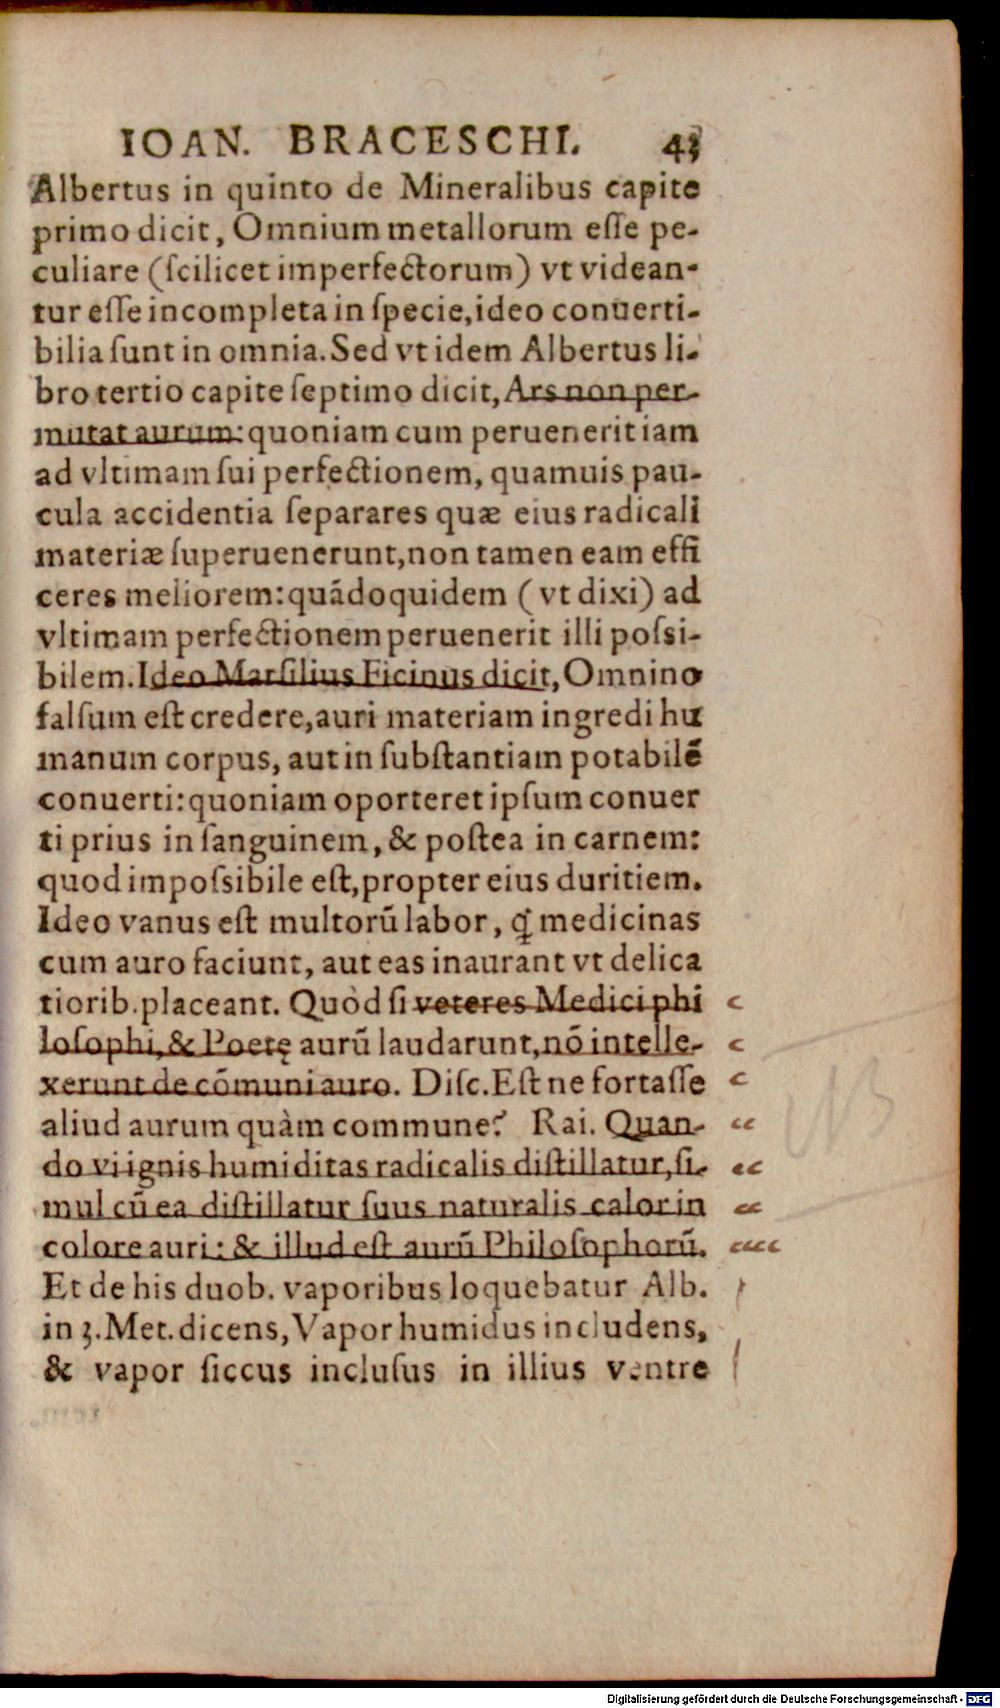 IOAN. BRACESCHI. 43
Albertus in quinto de Mineralibus capite
primo dicit, Omnium metallorum eſſe pe-
culiare (ſcilicet imperfectorum) vt videan-
tur eſſe incompleta in ſpecie, ideo conuerti-
bilia ſunt in omnia. Sed vt idem Albertus li-
bro tertio capite ſeptimo dicit, Ars non per-
mutat aurum: quoniam cum peruenerit iam
ad vltimam ſui perfectionem, quamuis pau-
cula accidentia ſeparares quæ eius radicali
materiæ ſuperuenerunt, non tamen eam effi
ceres meliorem: quādoquidem ( vt dixi) ad
vltimam perfectionem peruenerit illi poſsi-
bilem. Ideo Marſilius Ficinus dicit, Omnino
falſum eſt credere, auri materiam ingredi hu
manum corpus, aut in ſubſtantiam potabilē
conuerti: quoniam oporteret ipſum conuer
ti prius in ſanguinem, & poſtea in carnem:
quod impoſsibile eſt, propter eius duritiem.
Ideo vanus eſt multorū labor, ꝗ medicinas
cum auro faciunt, aut eas inaurant vt delica
tiorib. placeant. Quòd ſi veteres Medici phi
loſophi, & Poetę aurū laudarunt, nō intelle-
xerunt de cōmuni auro. Diſc. Eſt ne fortaſſe
aliud aurum quàm commune? Rai. Quan-
do vi ignis humiditas radicalis diſtillatur, ſi-
mul cū ea diſtillatur ſuus naturalis calor in
colore auri: & illud eſt aurū Philoſophorū.
Et de his duob. vaporibus loquebatur Alb.
in 3. Met. dicens, Vapor humidus includens,
& vapor ſiccus incluſus in illius ventre
NB
Digitalisierung gefördert durch die Deutsche Forschungsgemeinschaft - DFG